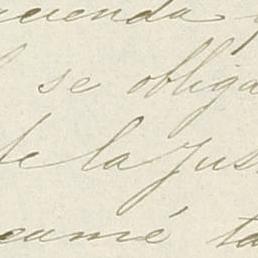 acienda y
se obliga
te la Jus
cumé ta